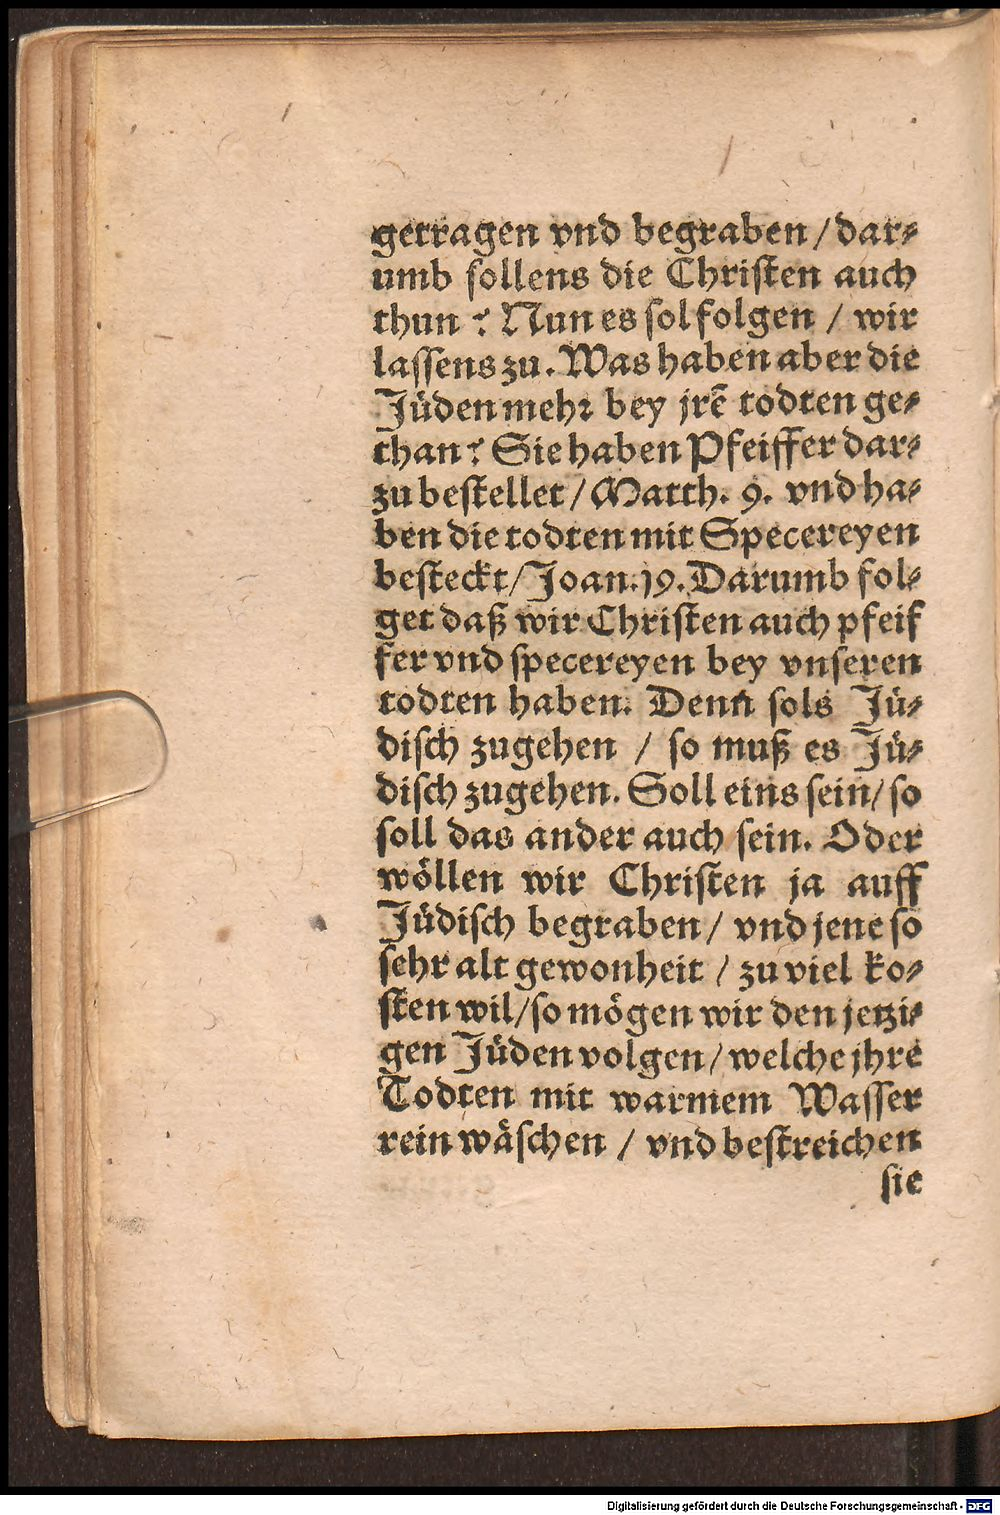 getragen vnd begraben / dar⸗
umb sollens die Christen auch
thun? Nun es sol folgen / wir
lassens zu. Was haben aber die
Jüden mehr bey jrẽ todten ge⸗
than? Sie haben Pfeiffer dar⸗
zu bestellet / Matth. 9. vnd ha⸗
ben die todten mit Specereyen
besteckt / Joan. 19. Darumb fol⸗
get daß wir Christen auch pfeif
fer vnd specereyen bey vnseren
todten haben. Denn sols Jü⸗
disch zugehen / so muß es Jü⸗
disch zugehen. Soll eins sein / so
soll das ander auch sein. Oder
wöllen wir Christen ja auff
Jüdisch begraben / vnd jene so
sehr alt gewonheit / zu viel ko⸗
sten wil / so mögen wir den jetzi⸗
gen Jüden volgen / welche jhre
Todten mit warmem Wasser
rein wäschen / vnd bestreichen
sie
Digitalisierung gefördert durch die Deutsche Forschungsgemeinschaft - DFG